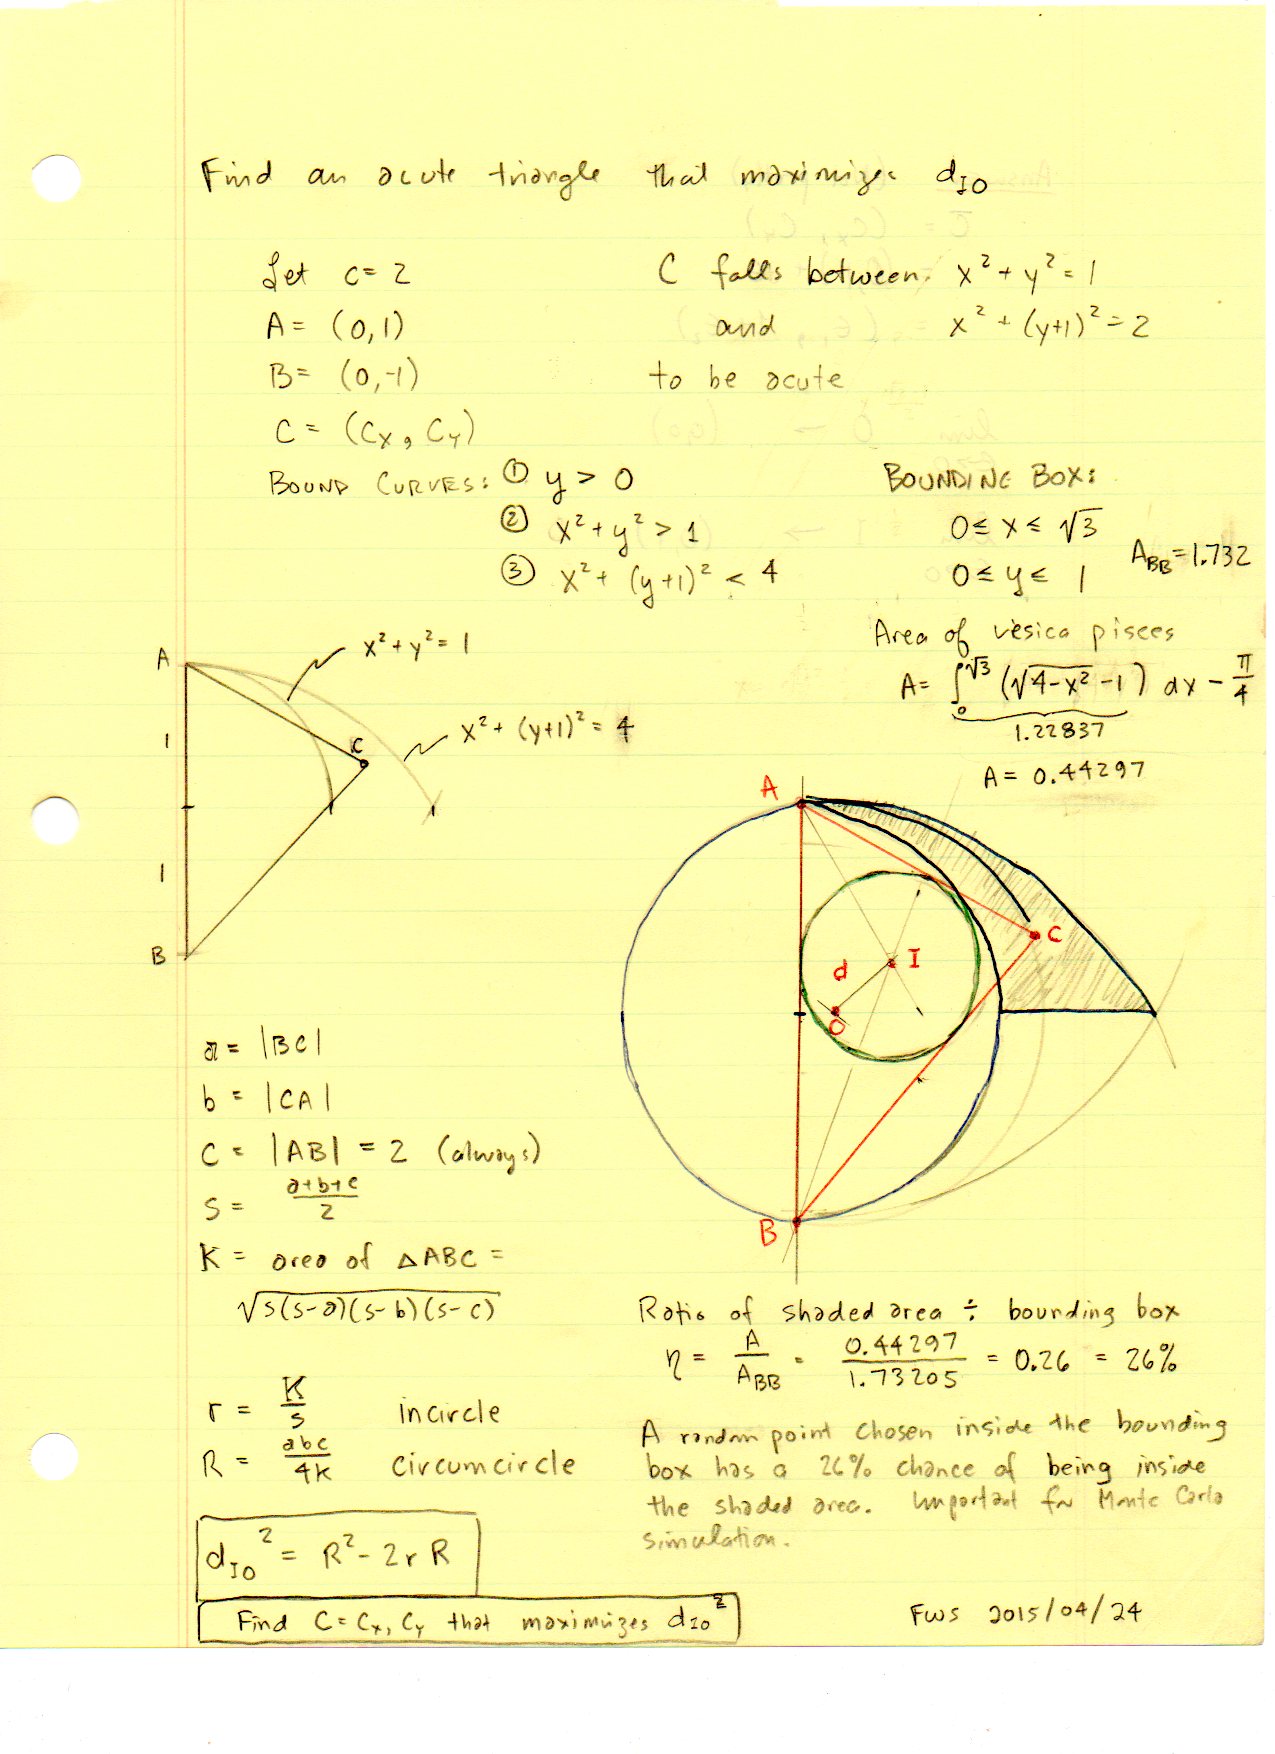 Find an acute triangle that maximizes d_IO
Let c = 2
A = (0,1)
B = (0,-1)
C = (Cx, Cy)
C falls between x² + y² = 1
and x² + (y+1)² = 2
to be acute
BOUND CURVES: ① y > 0
② x² + y² > 1
③ x² + (y+1)² < 4
BOUNDING BOX:
0 ≤ x ≤ √3
0 ≤ y ≤ 1
A_BB = 1.732
Area of vesica pisces
A = ∫₀^√3 (√4-x² -1) dx - π/4
1.22837
A = 0.44297
A
x² + y² = 1
x² + (y+1)² = 4
C
1
1
B
A
C
I
d
O
B
a = |BC|
b = |CA|
c = |AB| = 2 (always)
s = a+b+c / 2
K = area of △ABC =
√s(s-a)(s-b)(s-c)
r = K/s incircle
R = abc/4K circumcircle
d_IO² = R² - 2rR
Find C = Cx, Cy that maximizes d_IO²
Ratio of shaded area ÷ bounding box
η = A/A_BB = 0.44297/1.73205 = 0.26 = 26%
A random point chosen inside the bounding
box has a 26% chance of being inside
the shaded area. Important for Monte Carlo
simulation.
FWS 2015/04/24